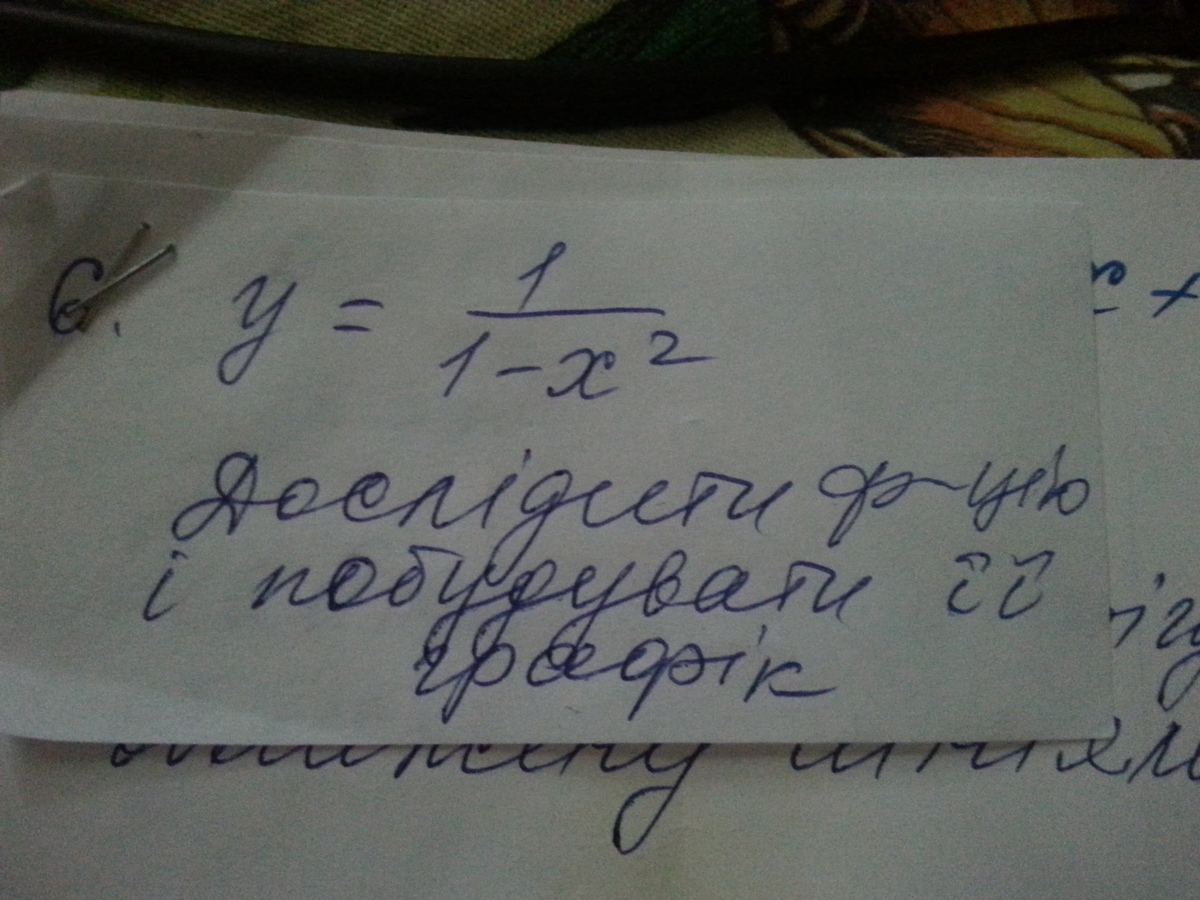 6. y = 1 / (1 - x²)
Дослідити ф-цію
і побудувати її
графік